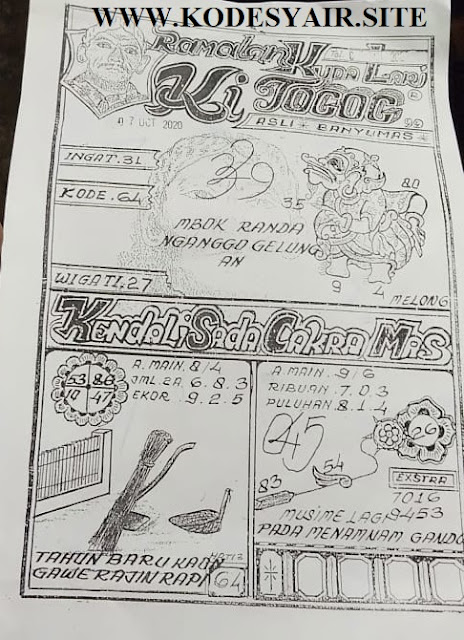 WWW.KODESYAIR.SITE
Ramalan Kuda Lari
Ki TOGOG
ASLI BANYUMAS
07 OCT 2020
INGAT.31
KODE.64
WIGATI.27
35
80
MBOK RANDA
NGANGGO GELUNG
AN
9 4
MELONG
KENDALI SADA CAKRA MAS
53 86
10 47
A.MAIN.8/4
JML 2A.6.8.3
EKOR.9.2.5
A MAIN.9/6
RIBUAN.7.0.3
PULUHAN.8.1.4
645
26
54
83
EXSTRA
7016
9453
MUSIME LAGI
PADA MENAMNAM GANDU
TAHUN BARU KAON
GAWE RAJIN RAPI
64